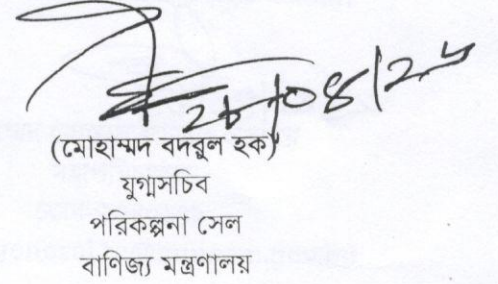 (মোহাম্মদ বদরুল হক)
যুগ্মসচিব
পরিকল্পনা সেল
বাণিজ্য মন্ত্রণালয়